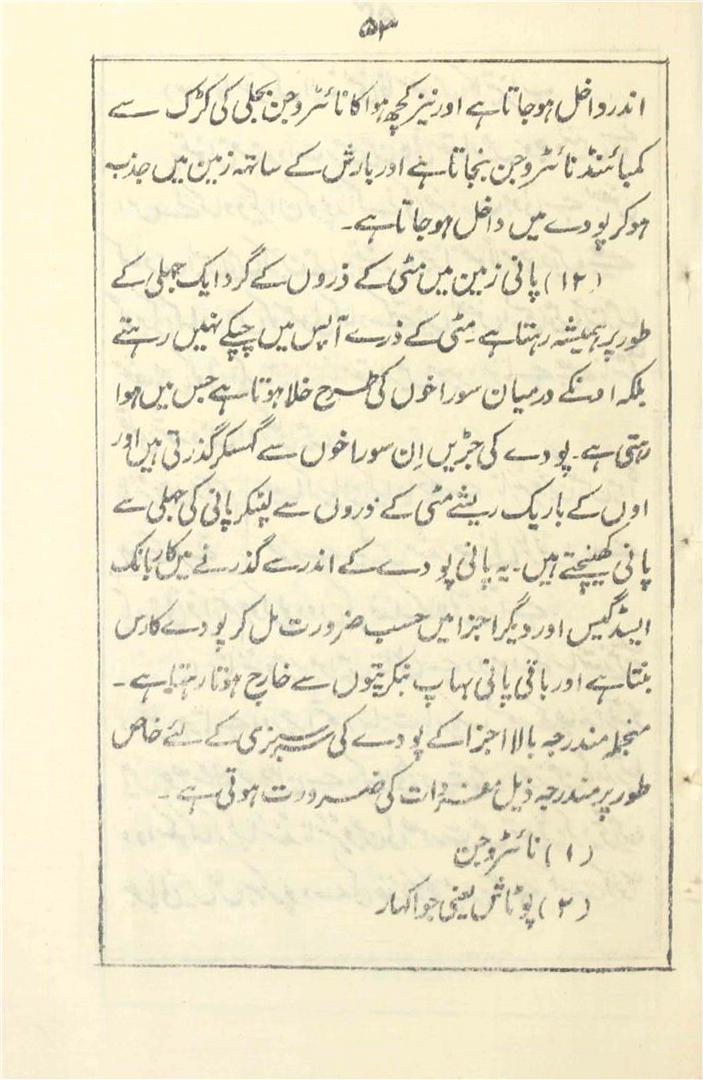 ۵۳
اندر داخل ہوجاتا ہے اور نیز کچھ ہوا کا نائٹروجن بجلی کی کڑک سے
کمبائنڈ نائٹروجن بنجاتا ہے اور بارش کے ساتھہ زمین میں جذب
ہوکر پودے میں داخل ہوجاتا ہے۔
(۱۲) پانی زمین میں مٹی کے ذروں کے گرد ایک جہلی کے
طور پر ہمیشہ رہتا ہے۔ مٹی کے ذرے آپس میں چپکے نہیں رہتے
بلکہ اونکے درمیان سوراخوں کی طرح خلا ہوتا ہے جس میں ہوا
رہتی ہے۔ پودے کی جڑیں اِن سوراخوں سے گہسکر گذرتی ہیں اور
اوں کے باریک ریشے مٹی کے ذروں سے لپٹکر پانی کی جہلی سے
پانی کھینچتے ہیں۔ یہ پانی پودے کے اندر سے گذرنے میں کاربانک
ایسڈ گیس اور دیگر اجزا میں حسب ضرورت مل کر پودے کا رس
بنتا ہے اور باقی پانی بہاپ بنکر پتوں سے خارج ہوتا رہتا ہے۔
منجملہ مندرجہ بالا اجزا کے پودے کی سرسبزی کے لئے خاص
طور پر مندرجہ ذیل مفردات کی ضرورت ہوتی ہے۔
(۱) نائٹروجن
(۲) پوٹاش یعنی جواکہار